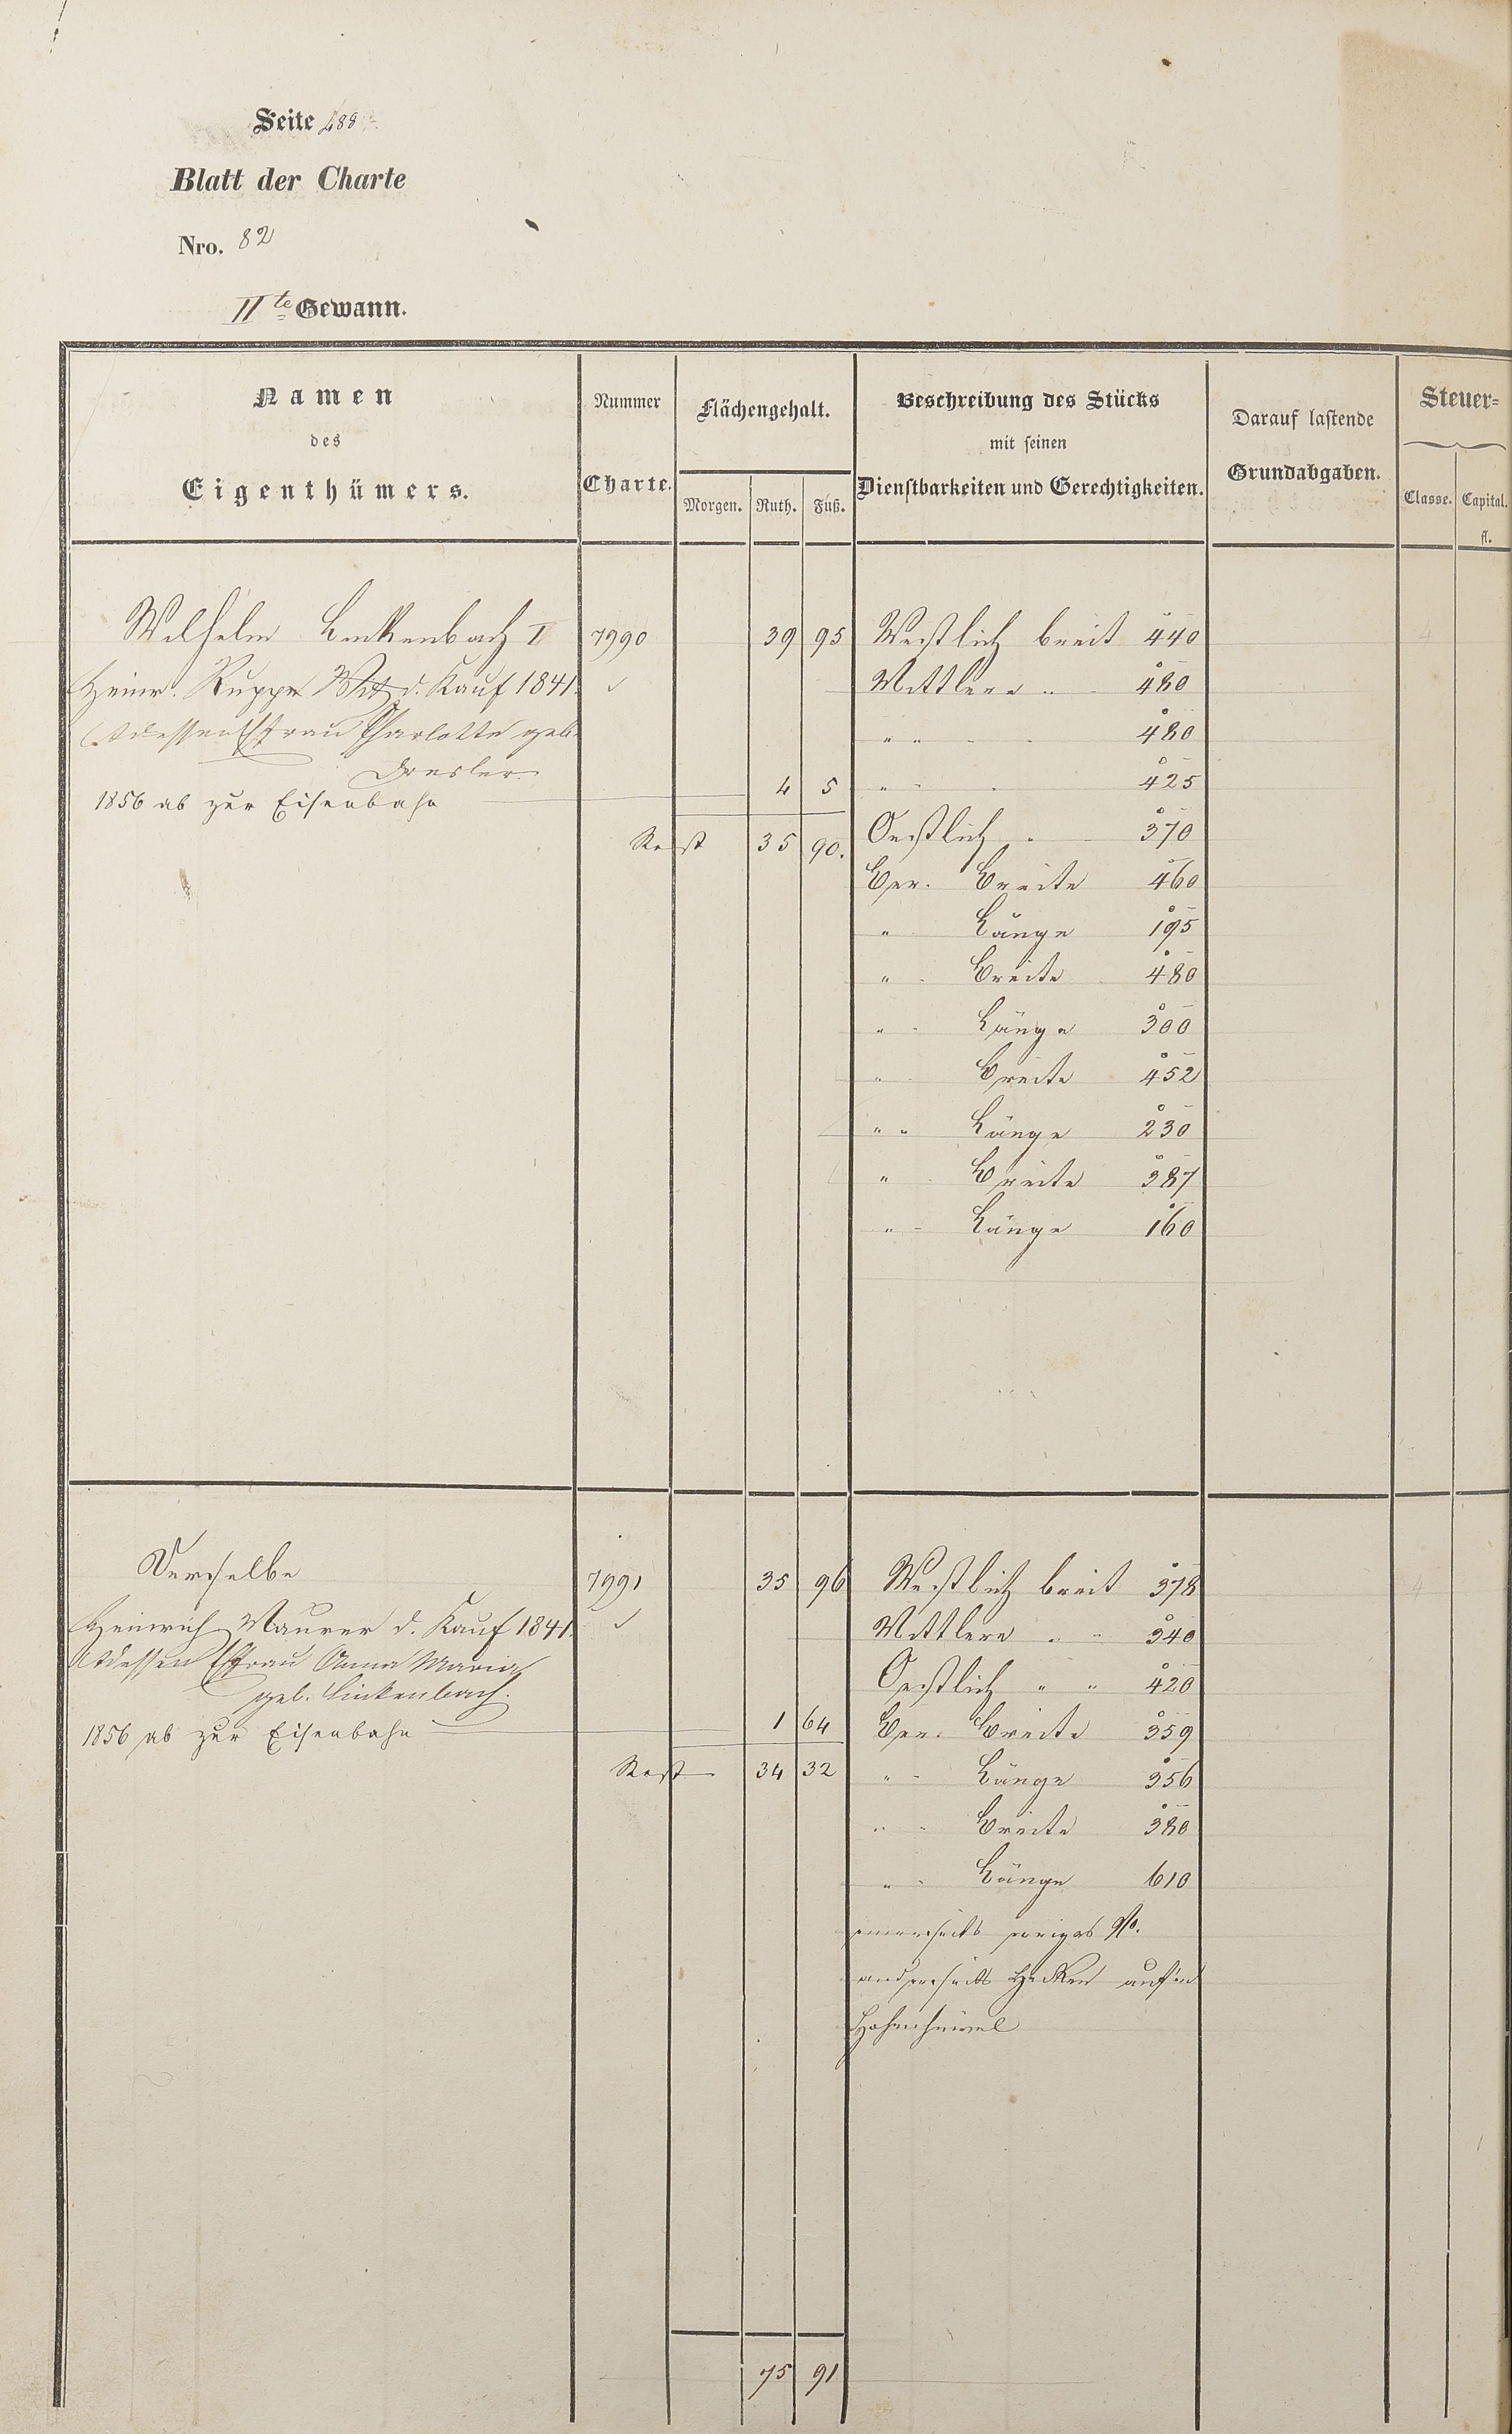 Seite 488
Blatt der Charte
Nro. 82
IIte Gewann.
Namen des Eigenthümers.
Nummer Charte.
Flächengehalt.
Morgen. Ruth. Fuß.
Beschreibung des Stücks
mit seinen
Dienstbarkeiten und Gerechtigkeiten.
Darauf lastende
Grundabgaben.
Steuer=
Classe. Capital.
fl.
Wilhelm Linkenbach I 7990 39 95 Westlich breit 440
Heinr. Rupper Witz d. Kauf 1841. Mittlere " 480
Ehefrau Charlotte geb. " " 480
Dresler
1856 ab zur Eisenbahn 4 5 " 425
Rest 35 90. Oestlich " 370
Ber. Breite 460
" Länge 195
" Breite 480
" Länge 300
" Breite 452
" " Länge 230
" Breite 387
" Länge 160
Derselbe 7991 35 96 Westlich breit 378
Heinrich Maurer d. Kauf 1841. Mittlere " " 340
Ehefrau Anna Maria Oestlich " " 420
geb. Linkenbach.
1856 ab zur Eisenbahn 1 64 Ber. Breite 359
Rest 34 32 " Länge 356
" " Breite 380
" Länge 610
einerseits voriges No.
anderseits Hecken auf'm
75 91